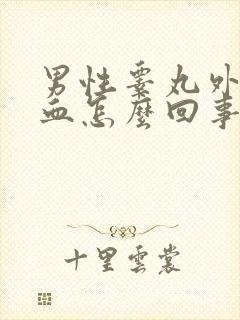 男性睾丸外
血怎麼回事
十里雲裳